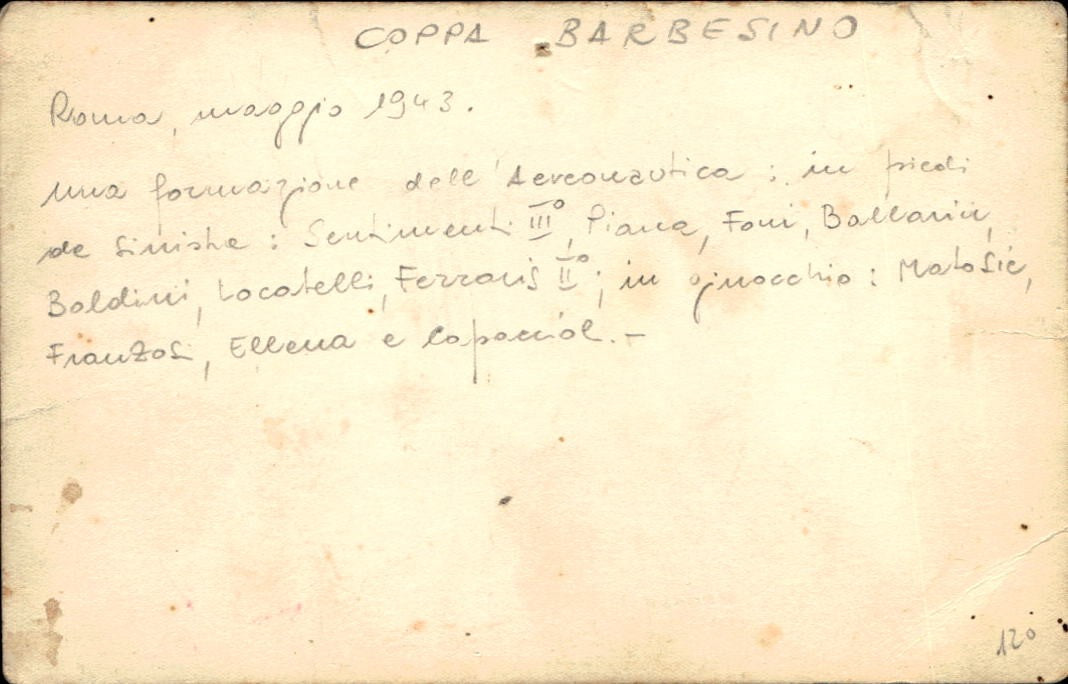 COPPA BARBESINO
Roma, maggio 1943.
una formazione dell'Aeronautica : in piedi
da sinistra : Sentimenti III°, Piana, Foni, Ballarin,
Boldini, Locatelli, Ferraris II° ; in ginocchio : Matosic,
Franzosi, Ellena e Capaciol. -
120